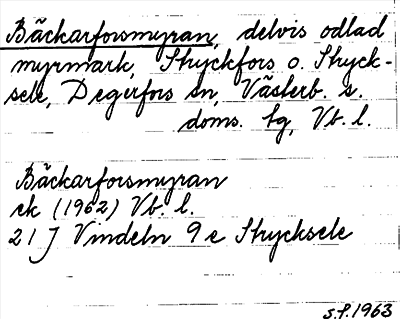 Bäckarforsmyran, delvis odlad
myrmark, Stryckfors o. Stryck-
sele, Degerfors sn, Västerb. s.
doms. tg, Vb. l.
Bäckarforsmyran
ek (1962) Vb. l.
21 J Vindeln 9 e Strycksele
S.P. 1963